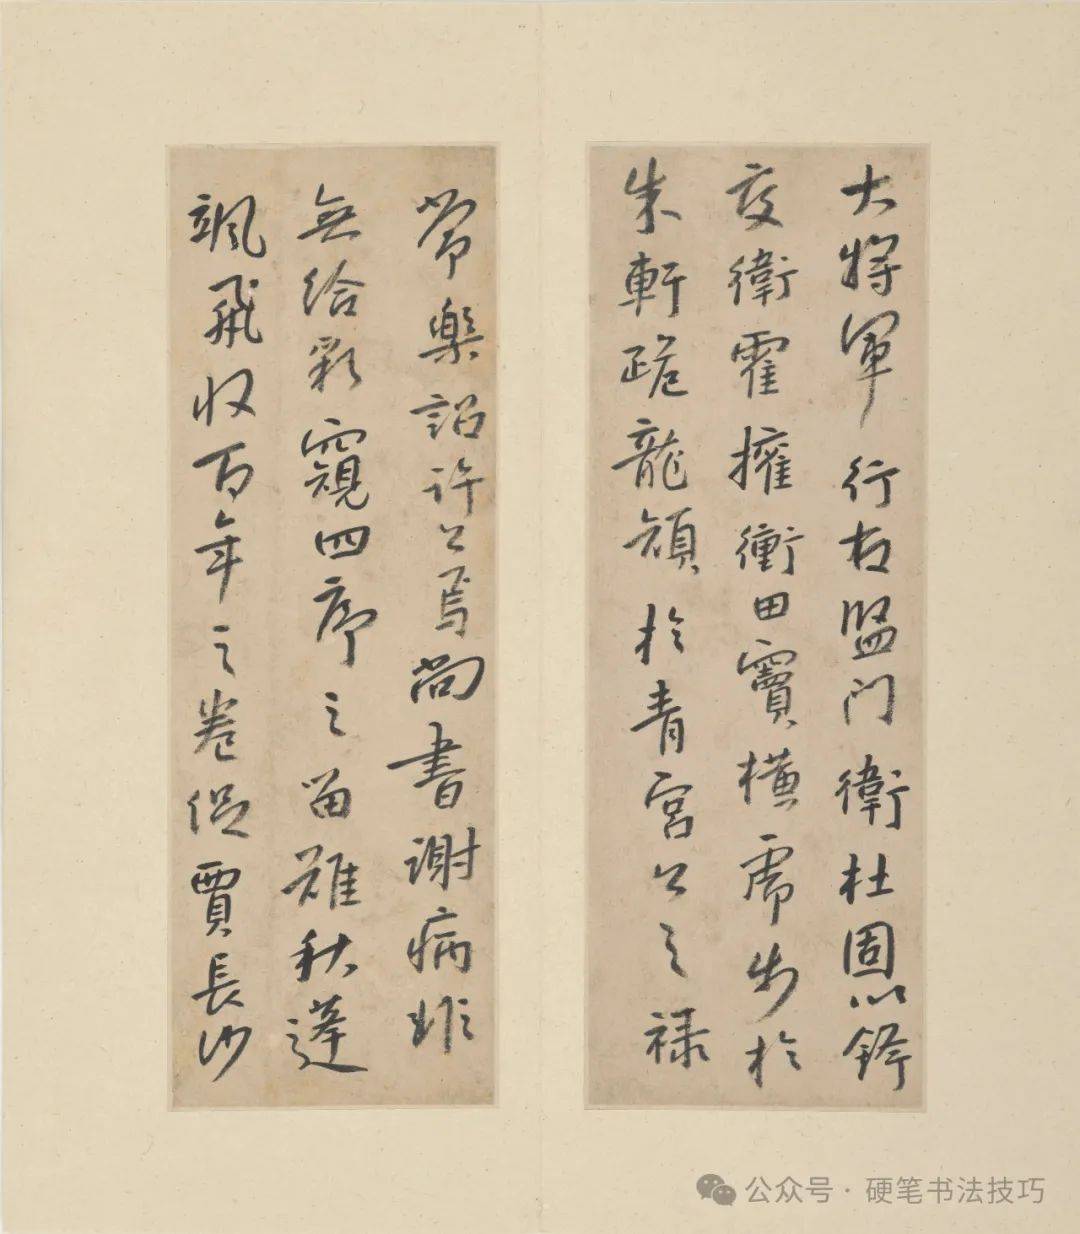 大将軍行盟门衛杜固以鋒
度衛霍擁衝田竇横虎步於
朱軒跪龍頷於青宮公之禄
常樂詔許公焉尚書謝病非
無給彩窺四序之留難秋蓬
颯飛收百年之卷促賈長沙
公众号·硬笔书法技巧